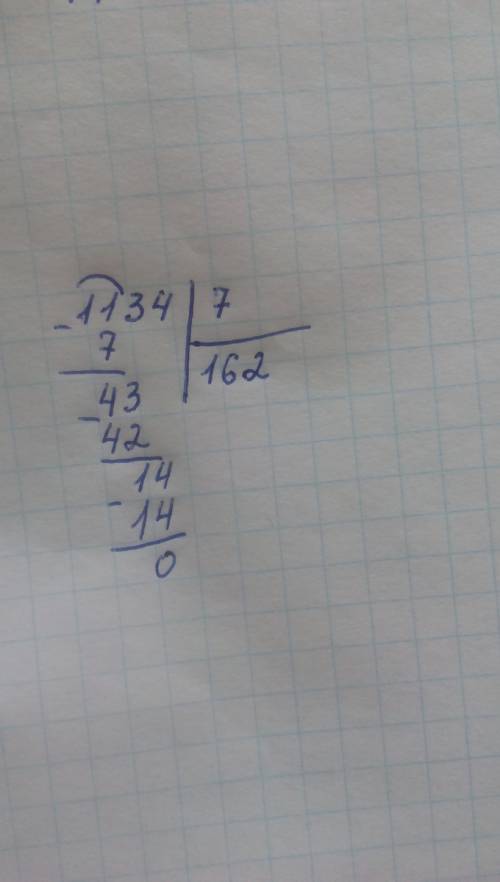 -1134 | 7
7
162
-43
42
-14
14
0